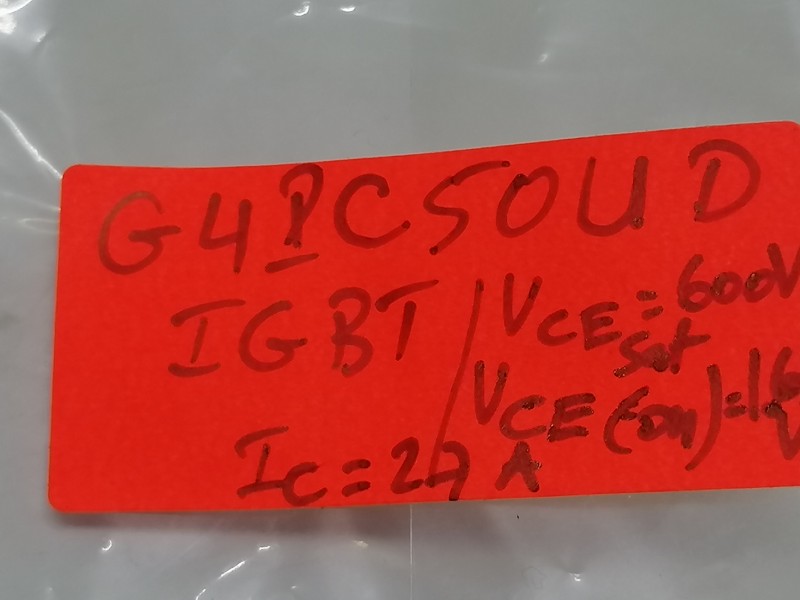 G4PC50UD
IGBT / VCE = 600V
sat
VCE (on) = 1.6
IC = 27 A